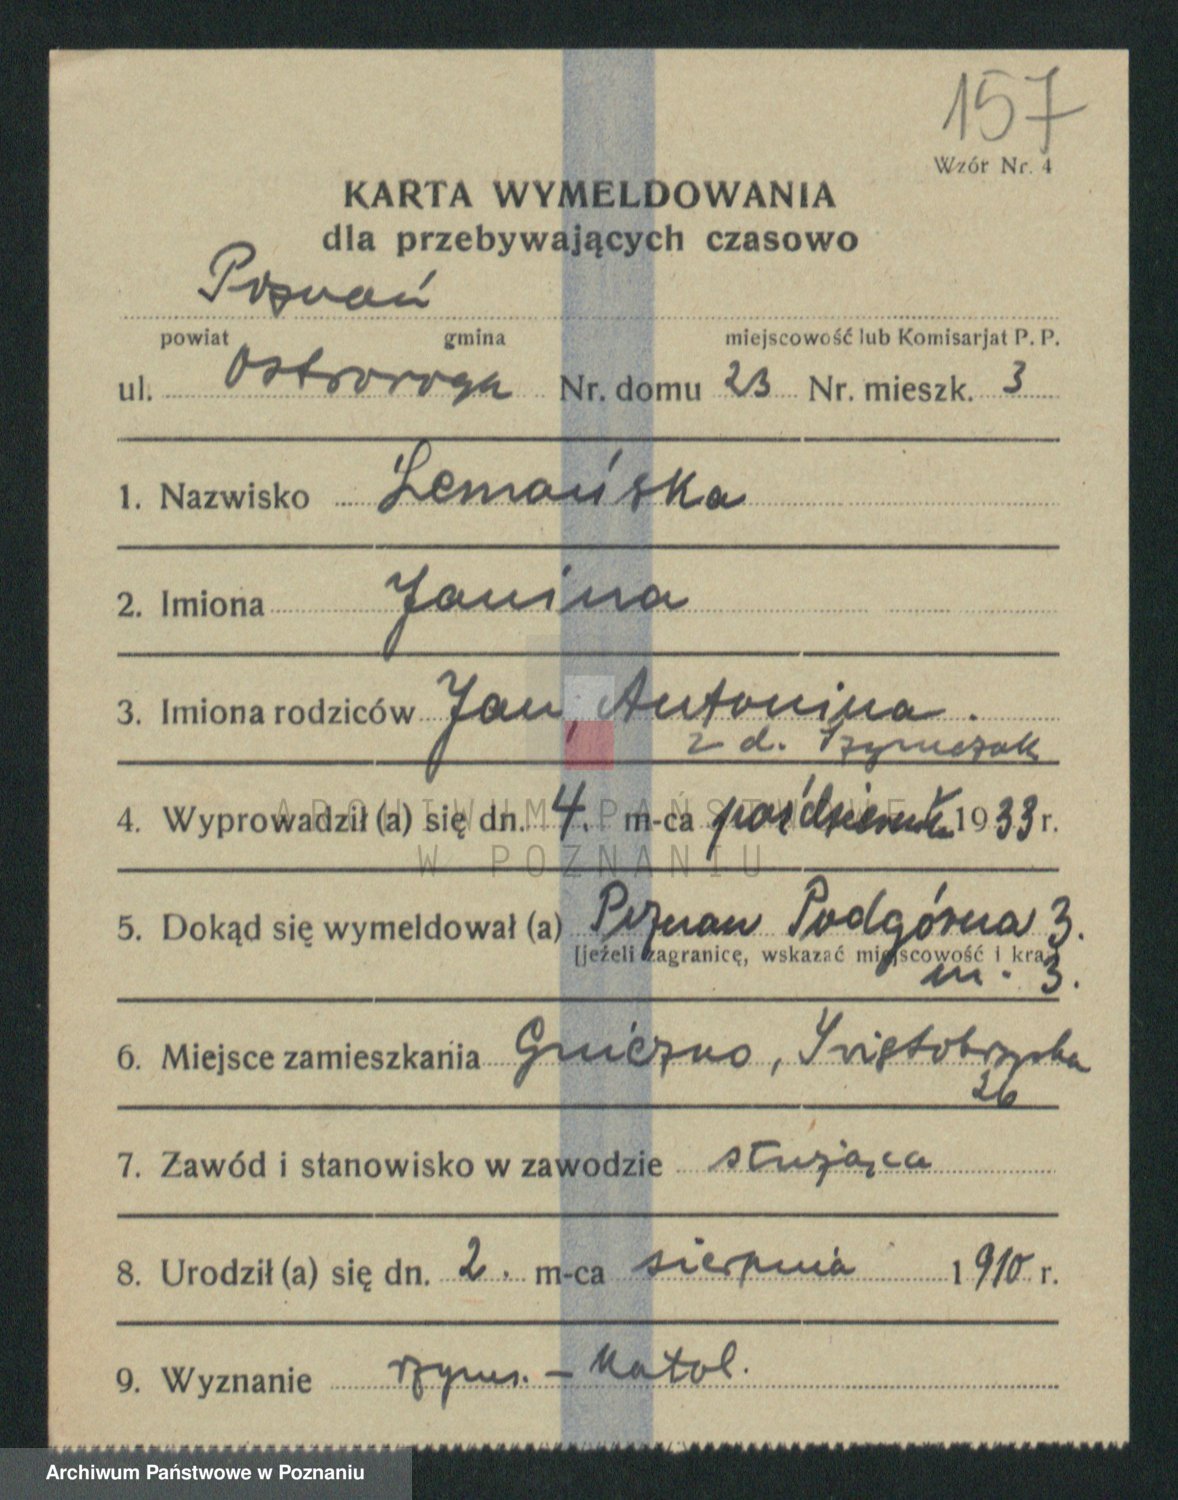 157
Wzór Nr. 4
KARTA WYMELDOWANIA
dla przebywających czasowo
Poznań
powiat gmina miejscowość lub Komisarjat P. P.
ul. Ostroroga Nr. domu 23 Nr. mieszk. 3
1. Nazwisko Lemańska
2. Imiona Janina
3. Imiona rodziców Jan, Antonina.
z d.
4. Wyprowadził (a) się dn. 4. m-ca październik 1933 r.
ARCHIWUM PAŃSTWOWE
W POZNANIU
5. Dokąd się wymeldował (a) Poznan Podgórna 3.
[jeżeli zagranicę, wskazać miejscowość i kraj]
m. 3.
6. Miejsce zamieszkania Gniezno,
26
7. Zawód i stanowisko w zawodzie służąca
8. Urodził (a) się dn. 2. m-ca sierpnia 1910 r.
9. Wyznanie rzyms. – Katol.
Archiwum Państwowe w Poznaniu